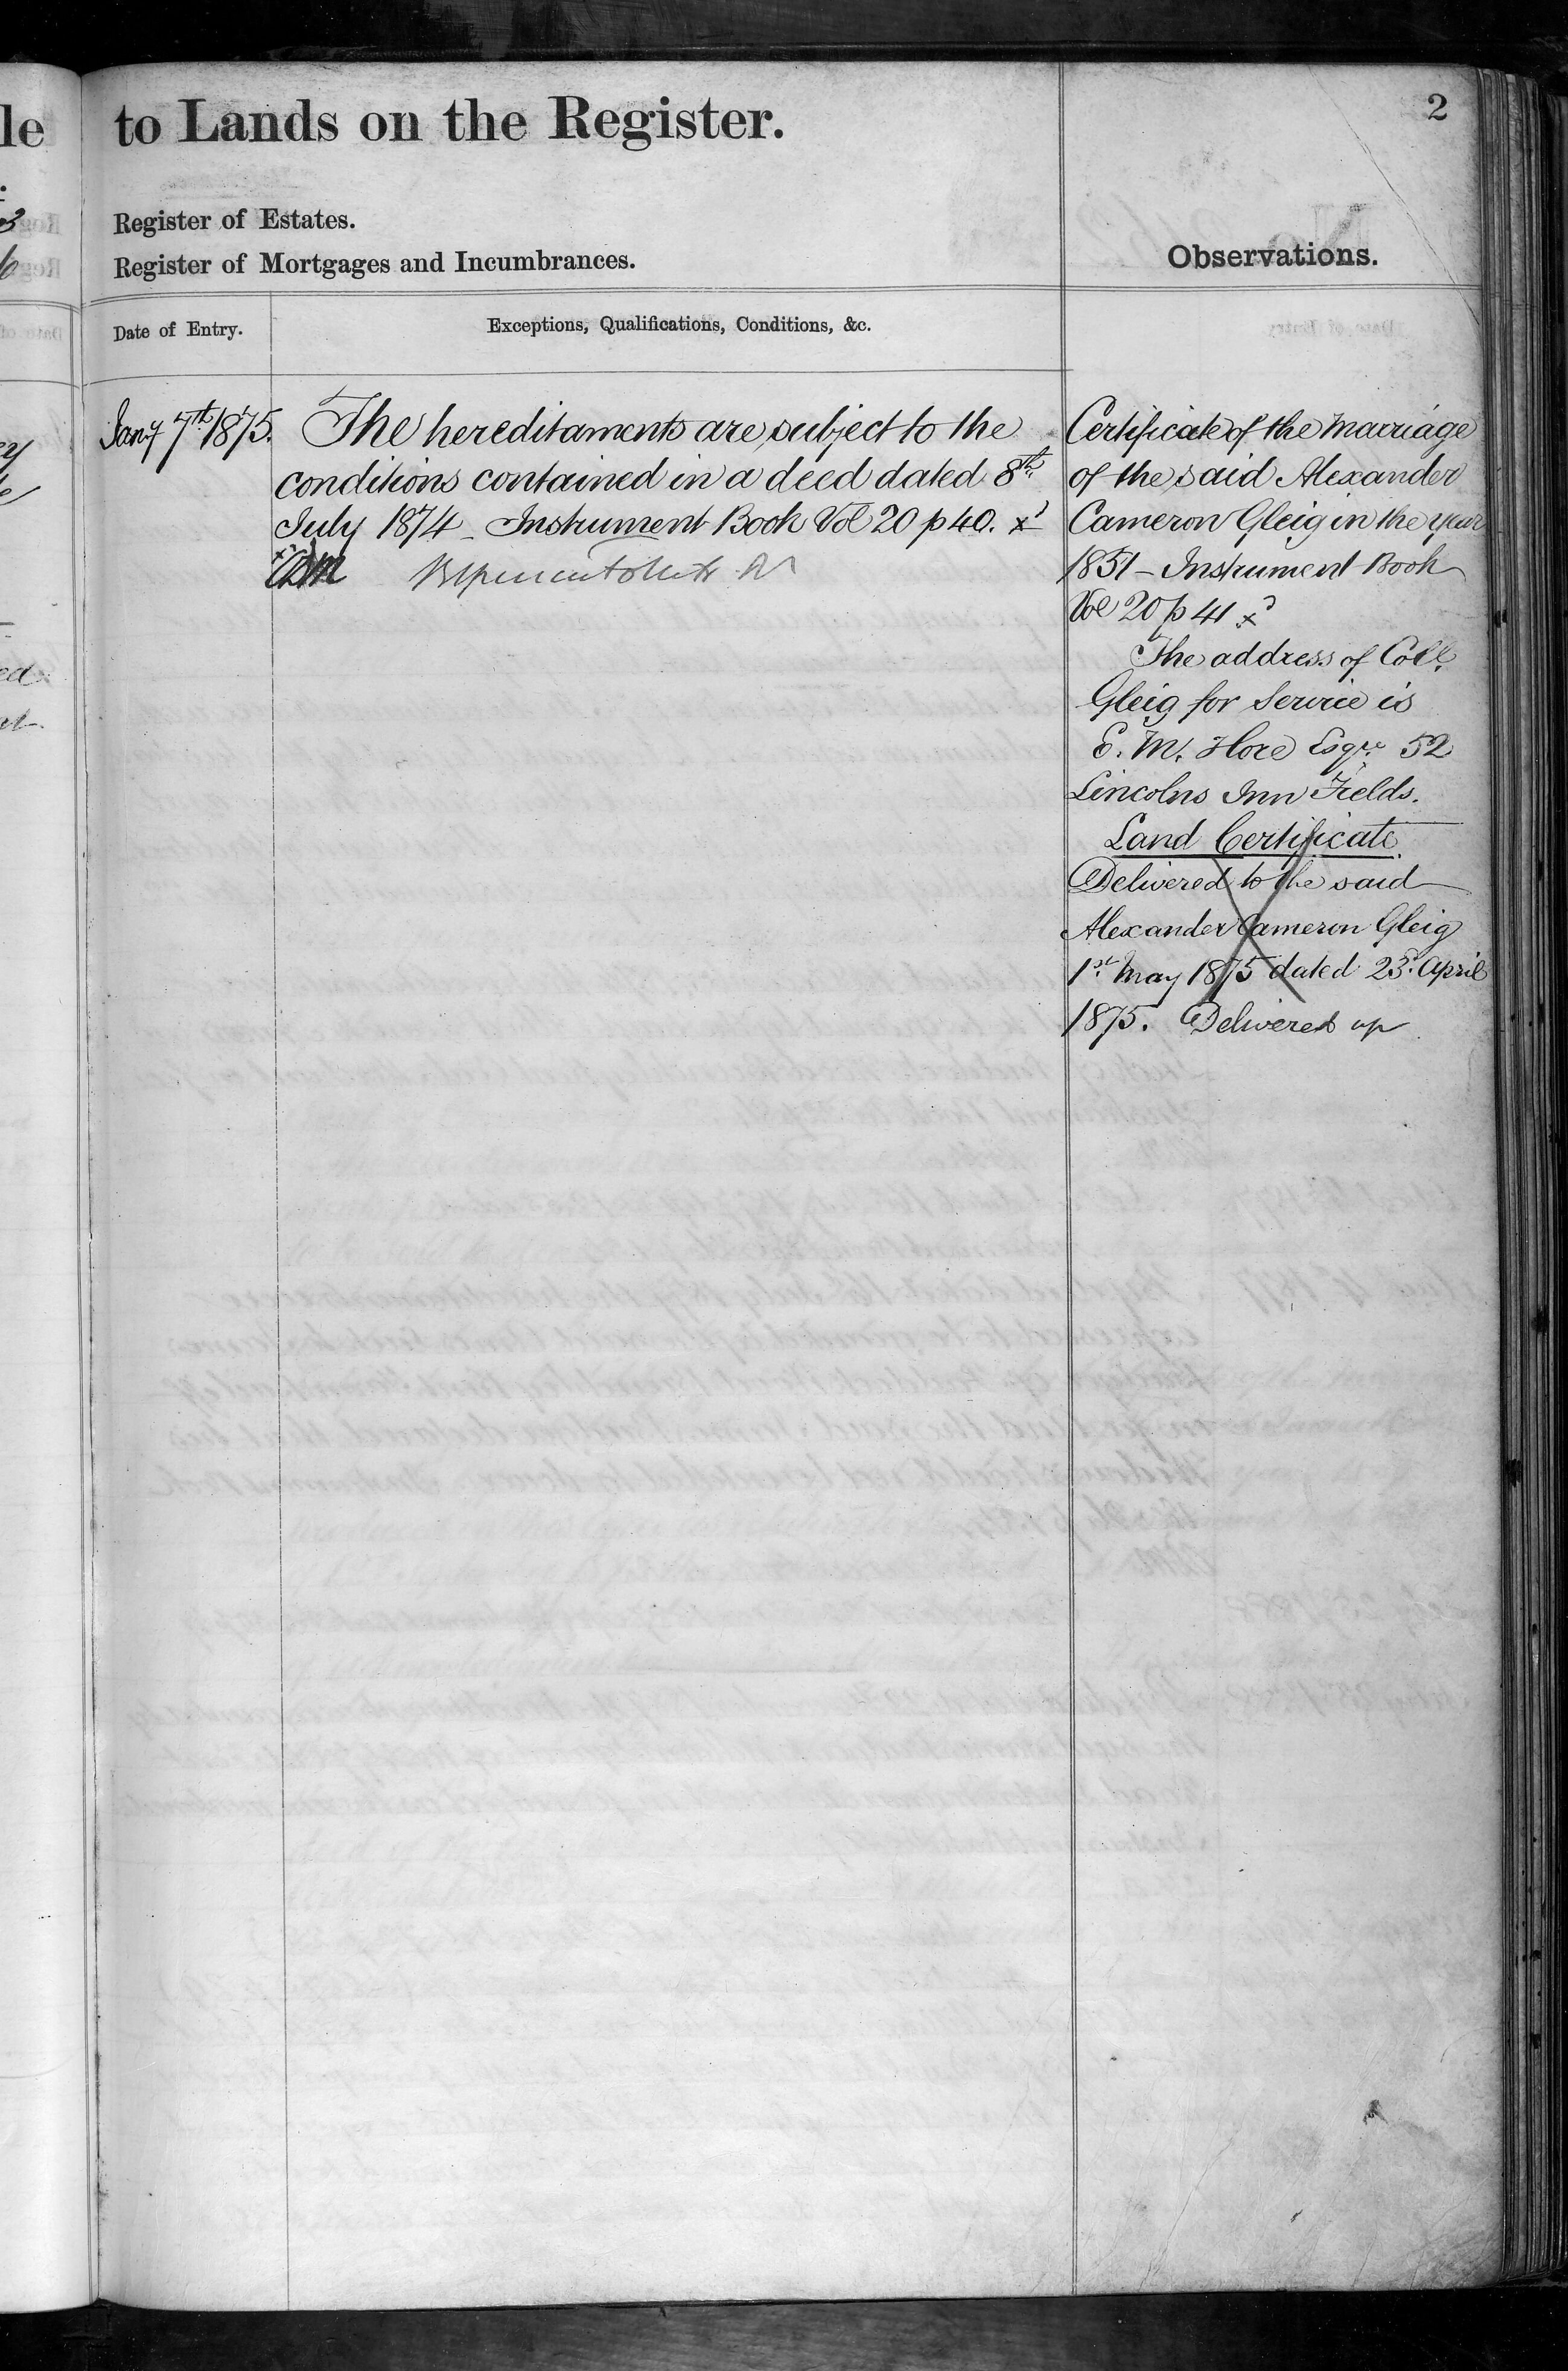 le
to Lands on the Register.
2
Register of Estates.
Register of Mortgages and Incumbrances.
Observations.
Date of Entry.
Exceptions, Qualifications, Conditions, &c.
Jany 7th 1875.
The hereditaments are subject to the
conditions contained in a deed dated 8th
July 1874 - Instrument Book Vol 20 p 40. x
Certificate of the Marriage
of the said Alexander
Cameron Gleig in the year
1851 - Instrument Book
Vol 20 p 41 x
The address of Coll.
Gleig for Service is
E. M. Hore Esqre. 52
Lincolns Inn Fields.
Land Certificate
Delivered to the said
Alexander Cameron Gleig
1st May 1875 dated 23d. April
1875. Delivered up